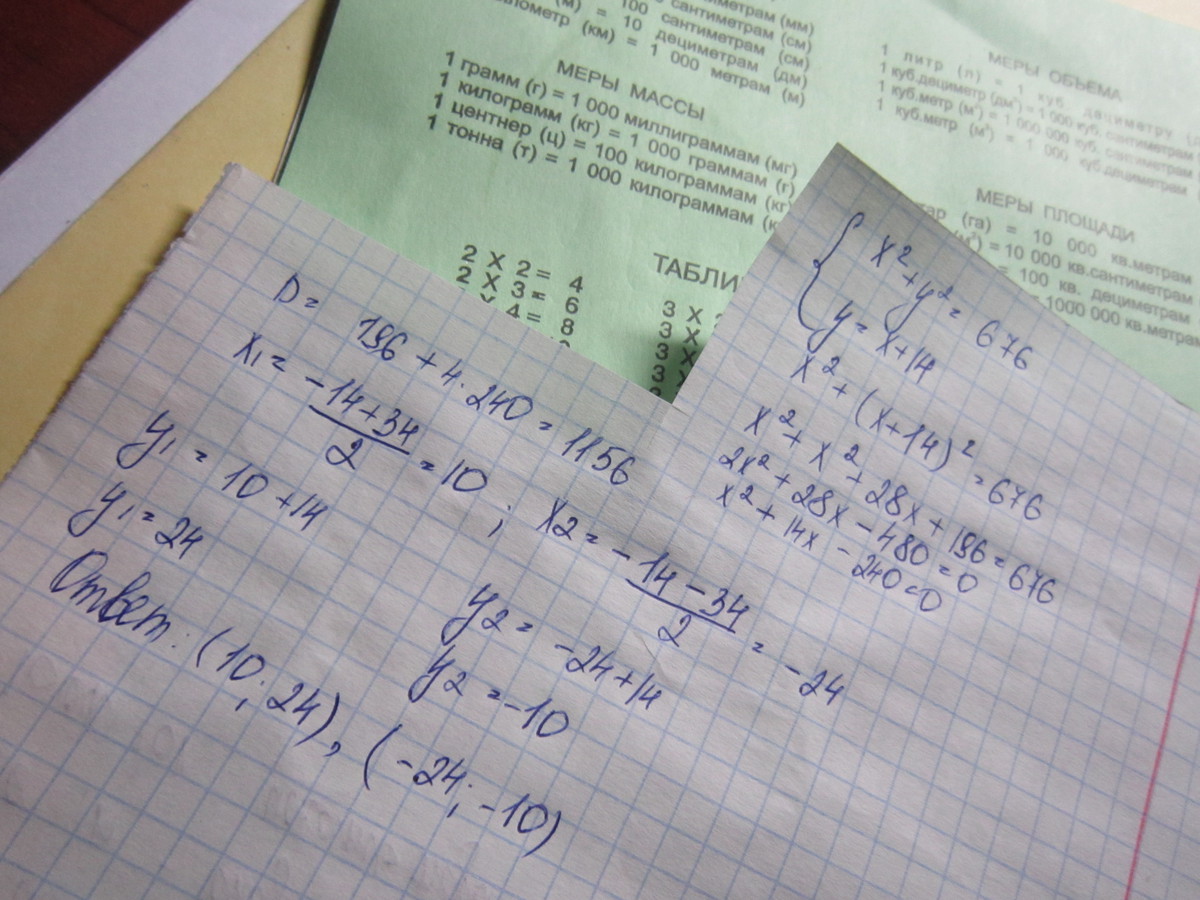 сантиметрам (мм)
(м) = 100 сантиметрам (см)
10 дециметрам (см)
(км) = 1 000 метрам (дм)
(м)
МЕРЫ МАССЫ
1 грамм (г) = 1 000 миллиграммам (мг)
1 килограмм (кг) = 1 000 граммам (г)
1 центнер (ц) = 100 килограммам (кг)
1 тонна (т) = 1 000 килограммам
МЕРЫ ОБЪЕМА
1 литр (л) = 1 куб. дециметру
1 куб.дециметр (дм³) = 1 000 куб. сантиметрам
1 куб.метр (м³) = 1 000 000 куб. сантиметрам
1 куб.метр (м³) = 1 000 куб.дециметрам
МЕРЫ ПЛОЩАДИ
(га) = 10 000 кв.метрам
= 10 000 кв.сантиметрам
= 100 кв. дециметрам
1000 000 кв.метрам
2 X 2 = 4
2 X 3 = 6
X 4 = 8
3 X
3 X
3 X
3 X
x² + y² = 676
y = x+14
x² + (x+14)² = 676
x² + x² + 28x + 196 = 676
2x² + 28x - 480 = 0
x² + 14x - 240 = 0
D = 196 + 4·240 = 1156
x1 = -14+34/2 = 10 ; x2 = -14-34/2 = -24
y1 = 10+14
y1 = 24
y2 = -24+14
y2 = -10
Ответ: (10; 24), (-24; -10)